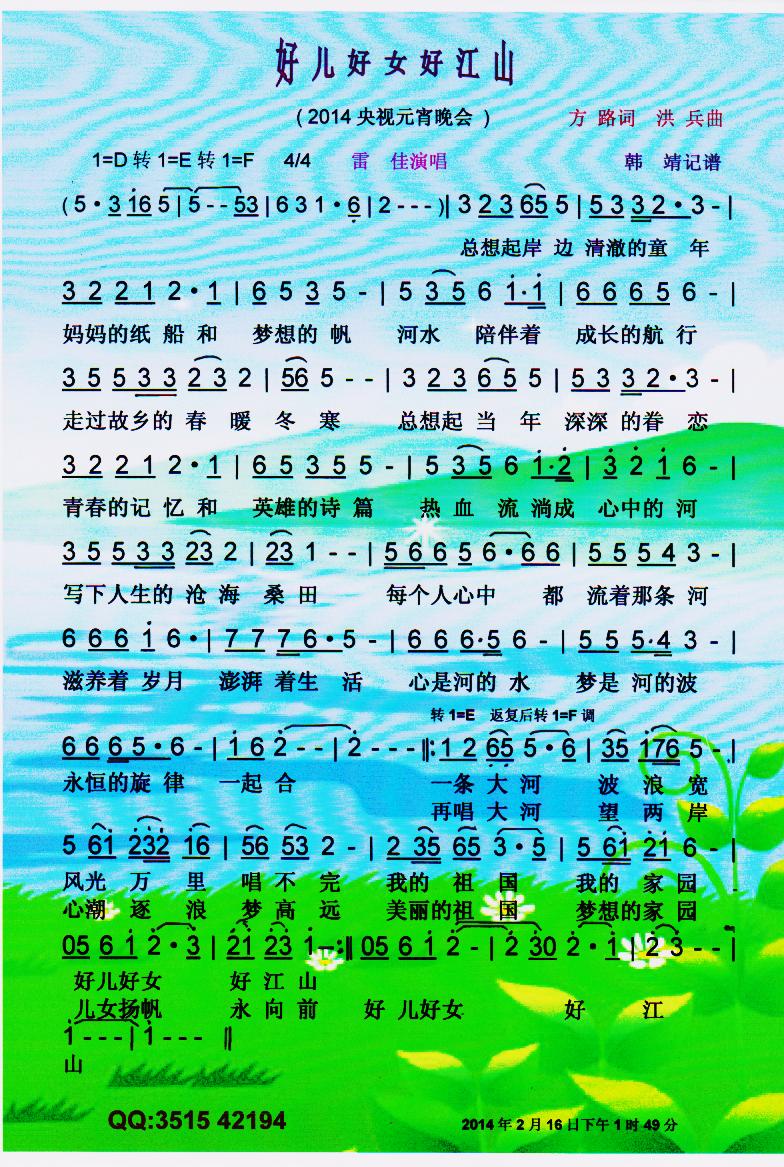 好儿好女好江山
（2014央视元宵晚会）
方 路词 洪 兵曲
1=D 转 1=E 转 1=F 4/4 雷 佳演唱 韩 靖记谱
( 5 · 3 16 5 | 5 - - 53 | 6 3 1 · 6 | 2 - - - ) | 3 23 65 5 | 53 32 · 3 - |
总想起岸 边 清澈的童 年
32 21 2 · 1 | 6 5 3 5 - | 5 35 6 1·1 | 66 65 6 - |
妈妈的纸 船 和 梦想的 帆 河水 陪伴着 成长的航 行
35 533 23 2 | 56 5 - - | 3 23 65 5 | 53 32·3 - |
走过故乡的 春 暖 冬 寒 总想起 当 年 深深 的眷 恋
32 21 2 · 1 | 65 35 5 - | 5 35 6 1·2 | 3 2 1 6 - |
青春的记 忆 和 英雄的诗 篇 热 血 流 淌成 心中的 河
35 533 23 2 | 23 1 - - | 56 65 6·6 6 | 55 54 3 - |
写下人生的 沧 海 桑 田 每个人心中 都 流着那条 河
6 66 1 6 · | 77 76·5 - | 66 6·5 6 - | 55 5·4 3 - |
滋养着 岁月 澎湃 着生 活 心是河的 水 梦是 河的波
转 1=E 返复后转 1=F 调
66 65·6 - | 16 2 - - | 2 - - - ‖: 12 65 5·6 | 35 176 5 - |
永恒的旋 律 一起 合 一条 大 河 波 浪 宽
再唱 大 河 望 两 岸
5 61 232 16 | 56 53 2 - | 2 35 65 3·5 | 5 61 21 6 - |
风光 万 里 唱 不 完 我的 祖 国 我的 家 园
心潮 逐 浪 梦 高 远 美丽的祖 国 梦想的家 园
05 61 2·3 | 21 23 1 - :‖ 05 61 2 - | 2 30 2·1 | 2 3 - - |
好儿好女 好 江 山
儿女扬帆 永 向 前 好 儿好女 好 江
1 - - - | 1 - - - ‖
山
QQ:3515 42194
2014 年 2 月 16 日下午 1 时 49 分